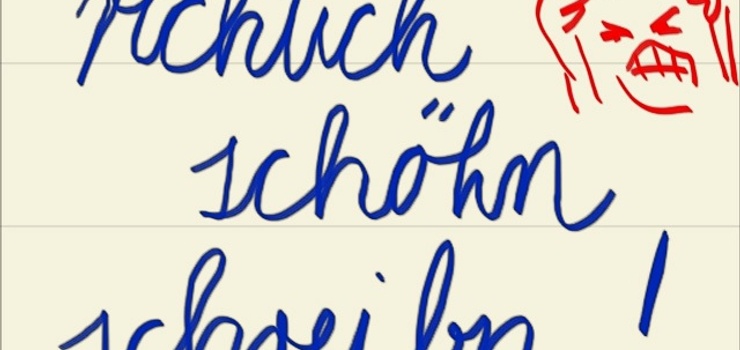 richtich
schöhn
schreibn !